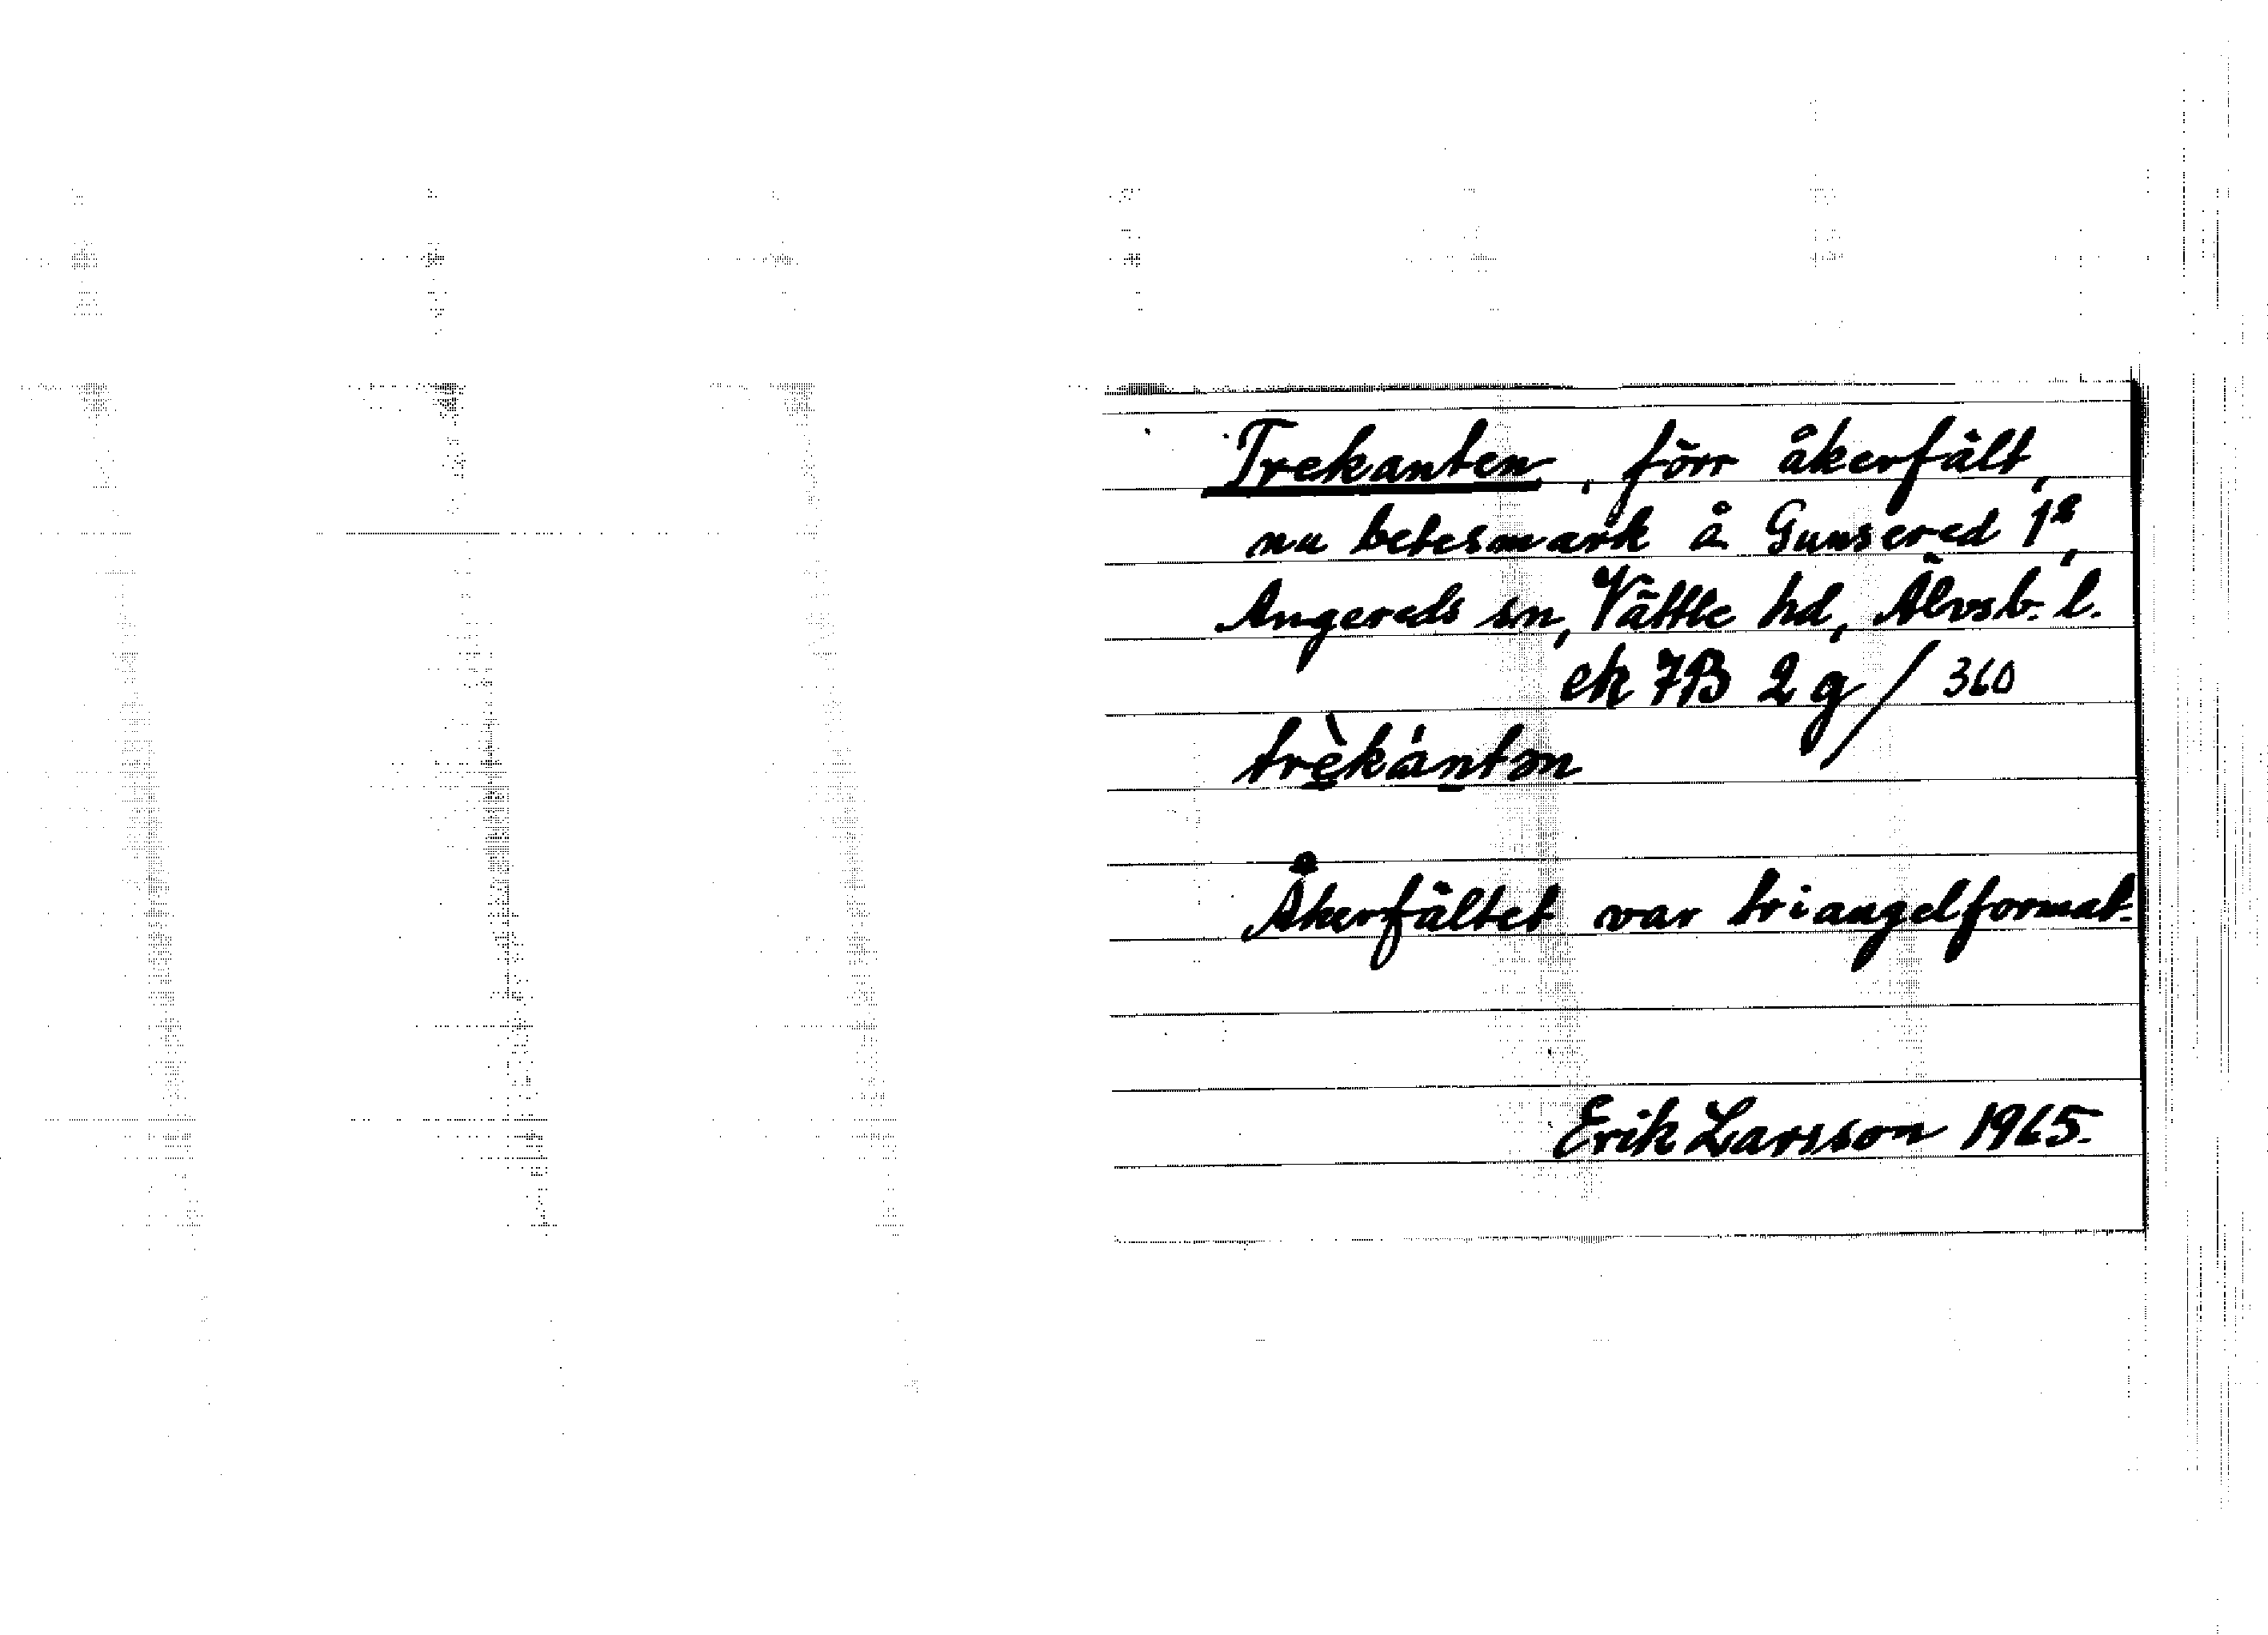 Trekanten, förr åkerfält,
nu betesmark å Gunsered 1²,
Angereds sn, Vättle hd, Älvsb. l.
ek 7B 2 g / 360
trèkántən
Åkerfältet var triangelformat.
Erik Larsson 1965.